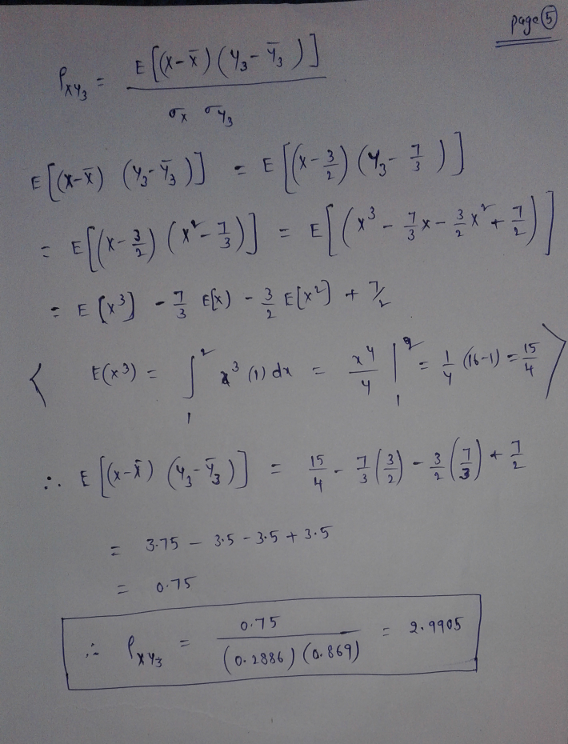 page ⑤
ρ_{XY₃} = E[(X-X̄)(Y₃-Ȳ₃)] / σ_X σ_{Y₃}
E[(X-X̄)(Y₃-Ȳ₃)] = E[(X-3/2)(Y₃-7/3)]
= E[(X-3/2)(X²-7/3)] = E[(X³ - 7/3 X - 3/2 X² + 7/2)]
= E[X³] - 7/3 E[X) - 3/2 E[X²] + 7/2
⟨ E(X³) = ∫₁² x³ (1) dx = x⁴/4 |₁² = 1/4 (16-1) = 15/4 ⟩
∴ E[(X-X̄)(Y₃-Ȳ₃)] = 15/4 - 7/3(3/2) - 3/2(7/3) + 7/2
= 3.75 - 3.5 - 3.5 + 3.5
= 0.75
∴ ρ_{XY₃} = 0.75 / (0.2886)(0.869) = 2.9905